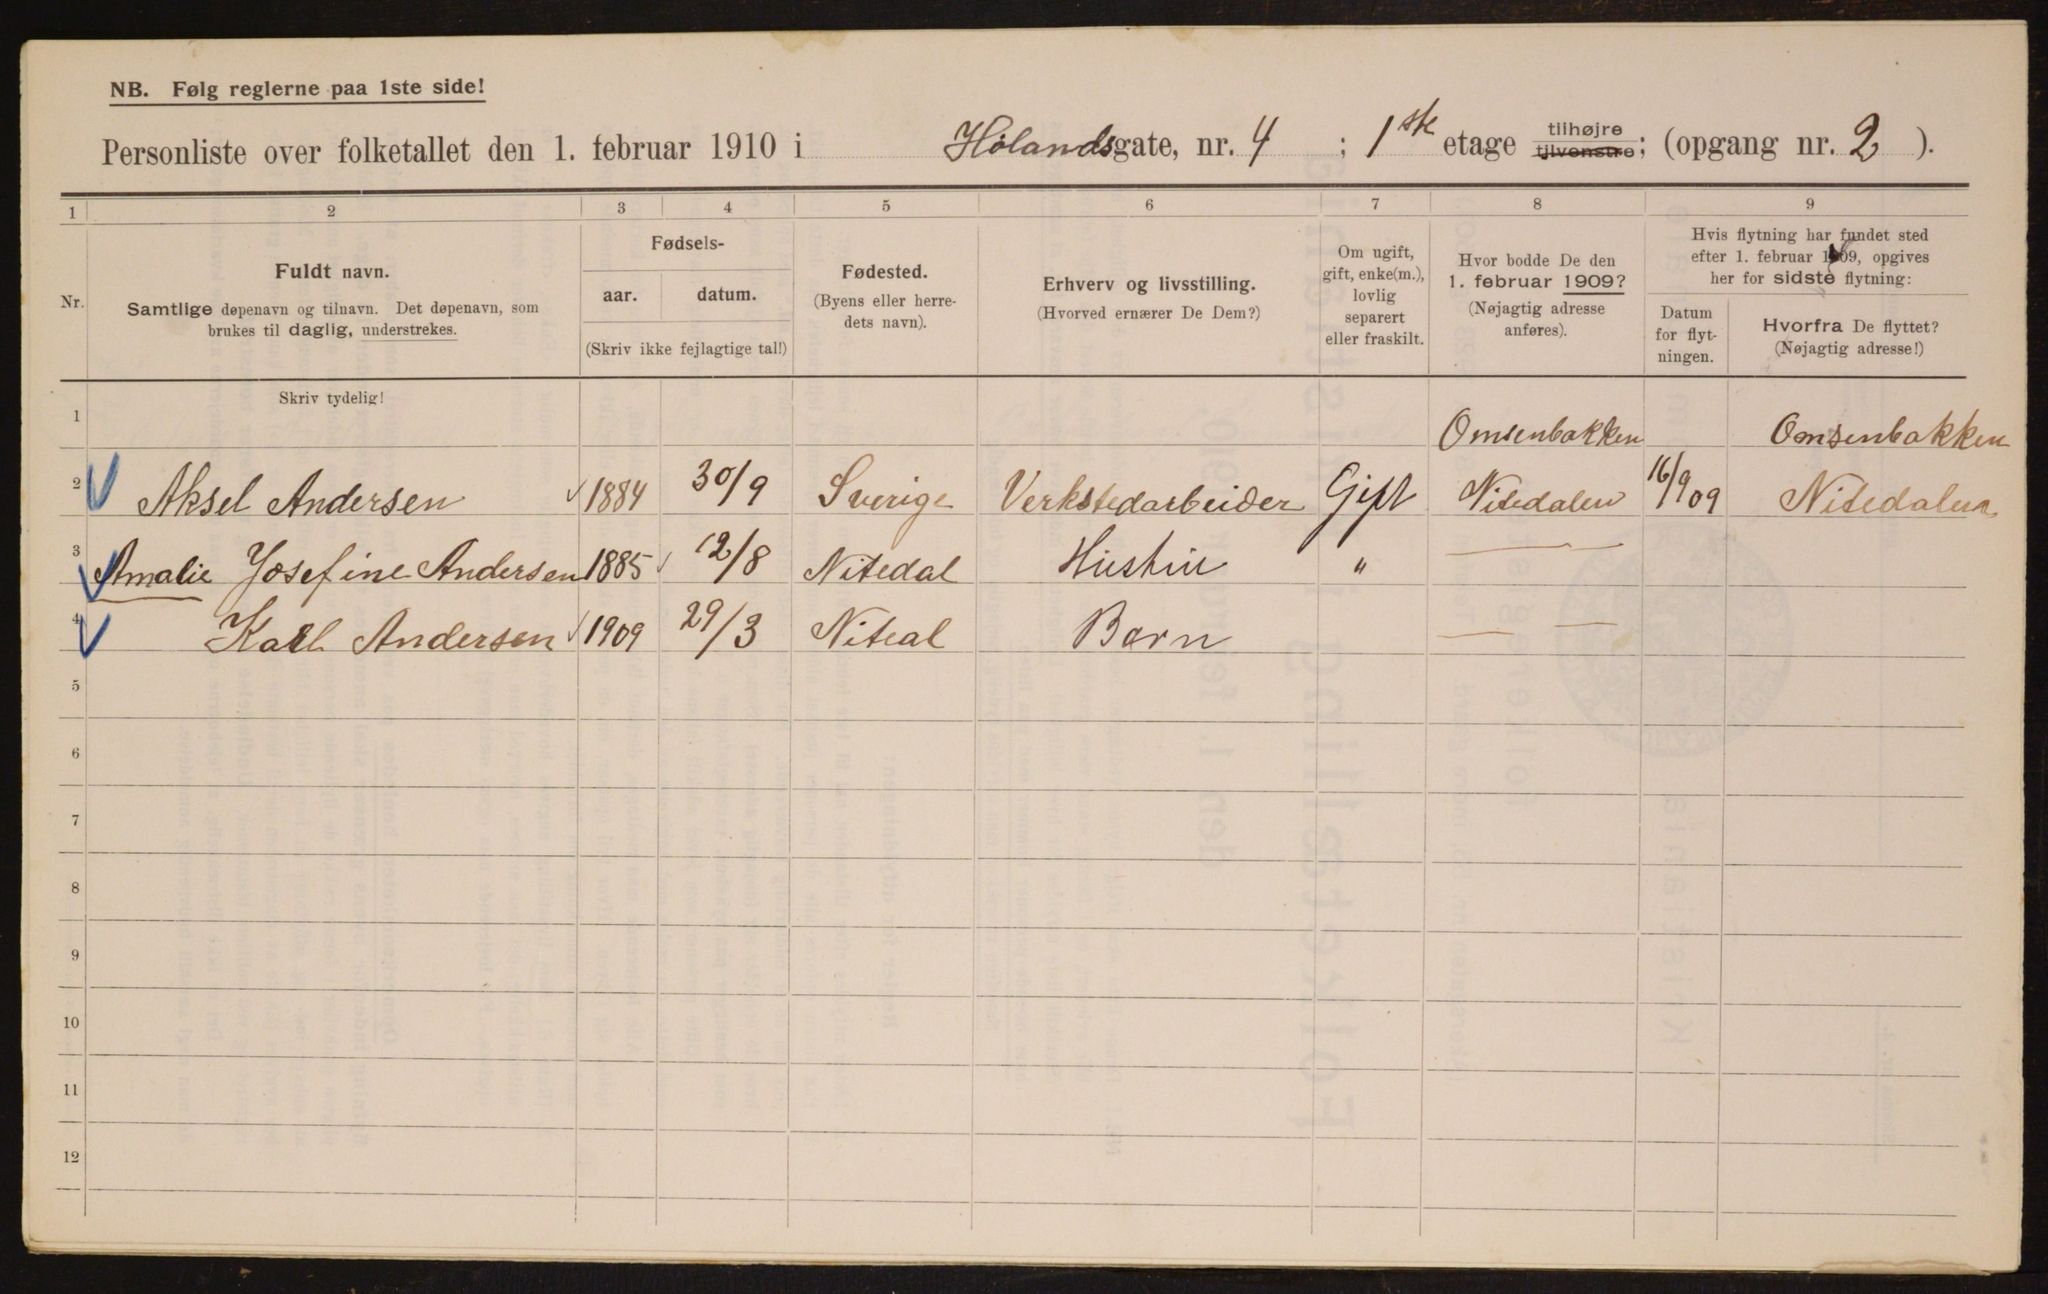 NB. Følg reglerne paa 1ste side!
Personliste over folketallet den 1. februar 1910 i Hölandsgate, nr. 4 ; 1ste etage tilhøjre tilvenstre; (opgang nr. 2 ).
1 2 3 4 5 6 7 8 9
Nr.
Fuldt navn.
Samtlige døpenavn og tilnavn. Det døpenavn, som
brukes til daglig, understrekes.
Fødsels-
aar. datum.
(Skriv ikke fejlagtige tal!)
Fødested.
(Byens eller herre-
dets navn).
Erhverv og livsstilling.
(Hvorved ernærer De Dem?)
Om ugift,
gift, enke(m.),
lovlig
separert
eller fraskilt.
Hvor bodde De den
1. februar 1909?
(Nøjagtig adresse
anføres).
Hvis flytning har fundet sted
efter 1. februar 1909, opgives
her for sidste flytning:
Datum
for flyt-
ningen.
Hvorfra De flyttet?
(Nøjagtig adresse!)
Skriv tydelig!
1 Omsenbakken Omsenbakken
2 Aksel Andersen 1884 30/9 Sverige Verkstedarbeider Gift Nitedalen 16/9 09 Nitedalen
3 Amalie Josefine Andersen 1885 12/8 Nitedal Hustru "
4 Karl Andersen 1909 29/3 Niteal Barn
5
6
7
8
9
10
11
12